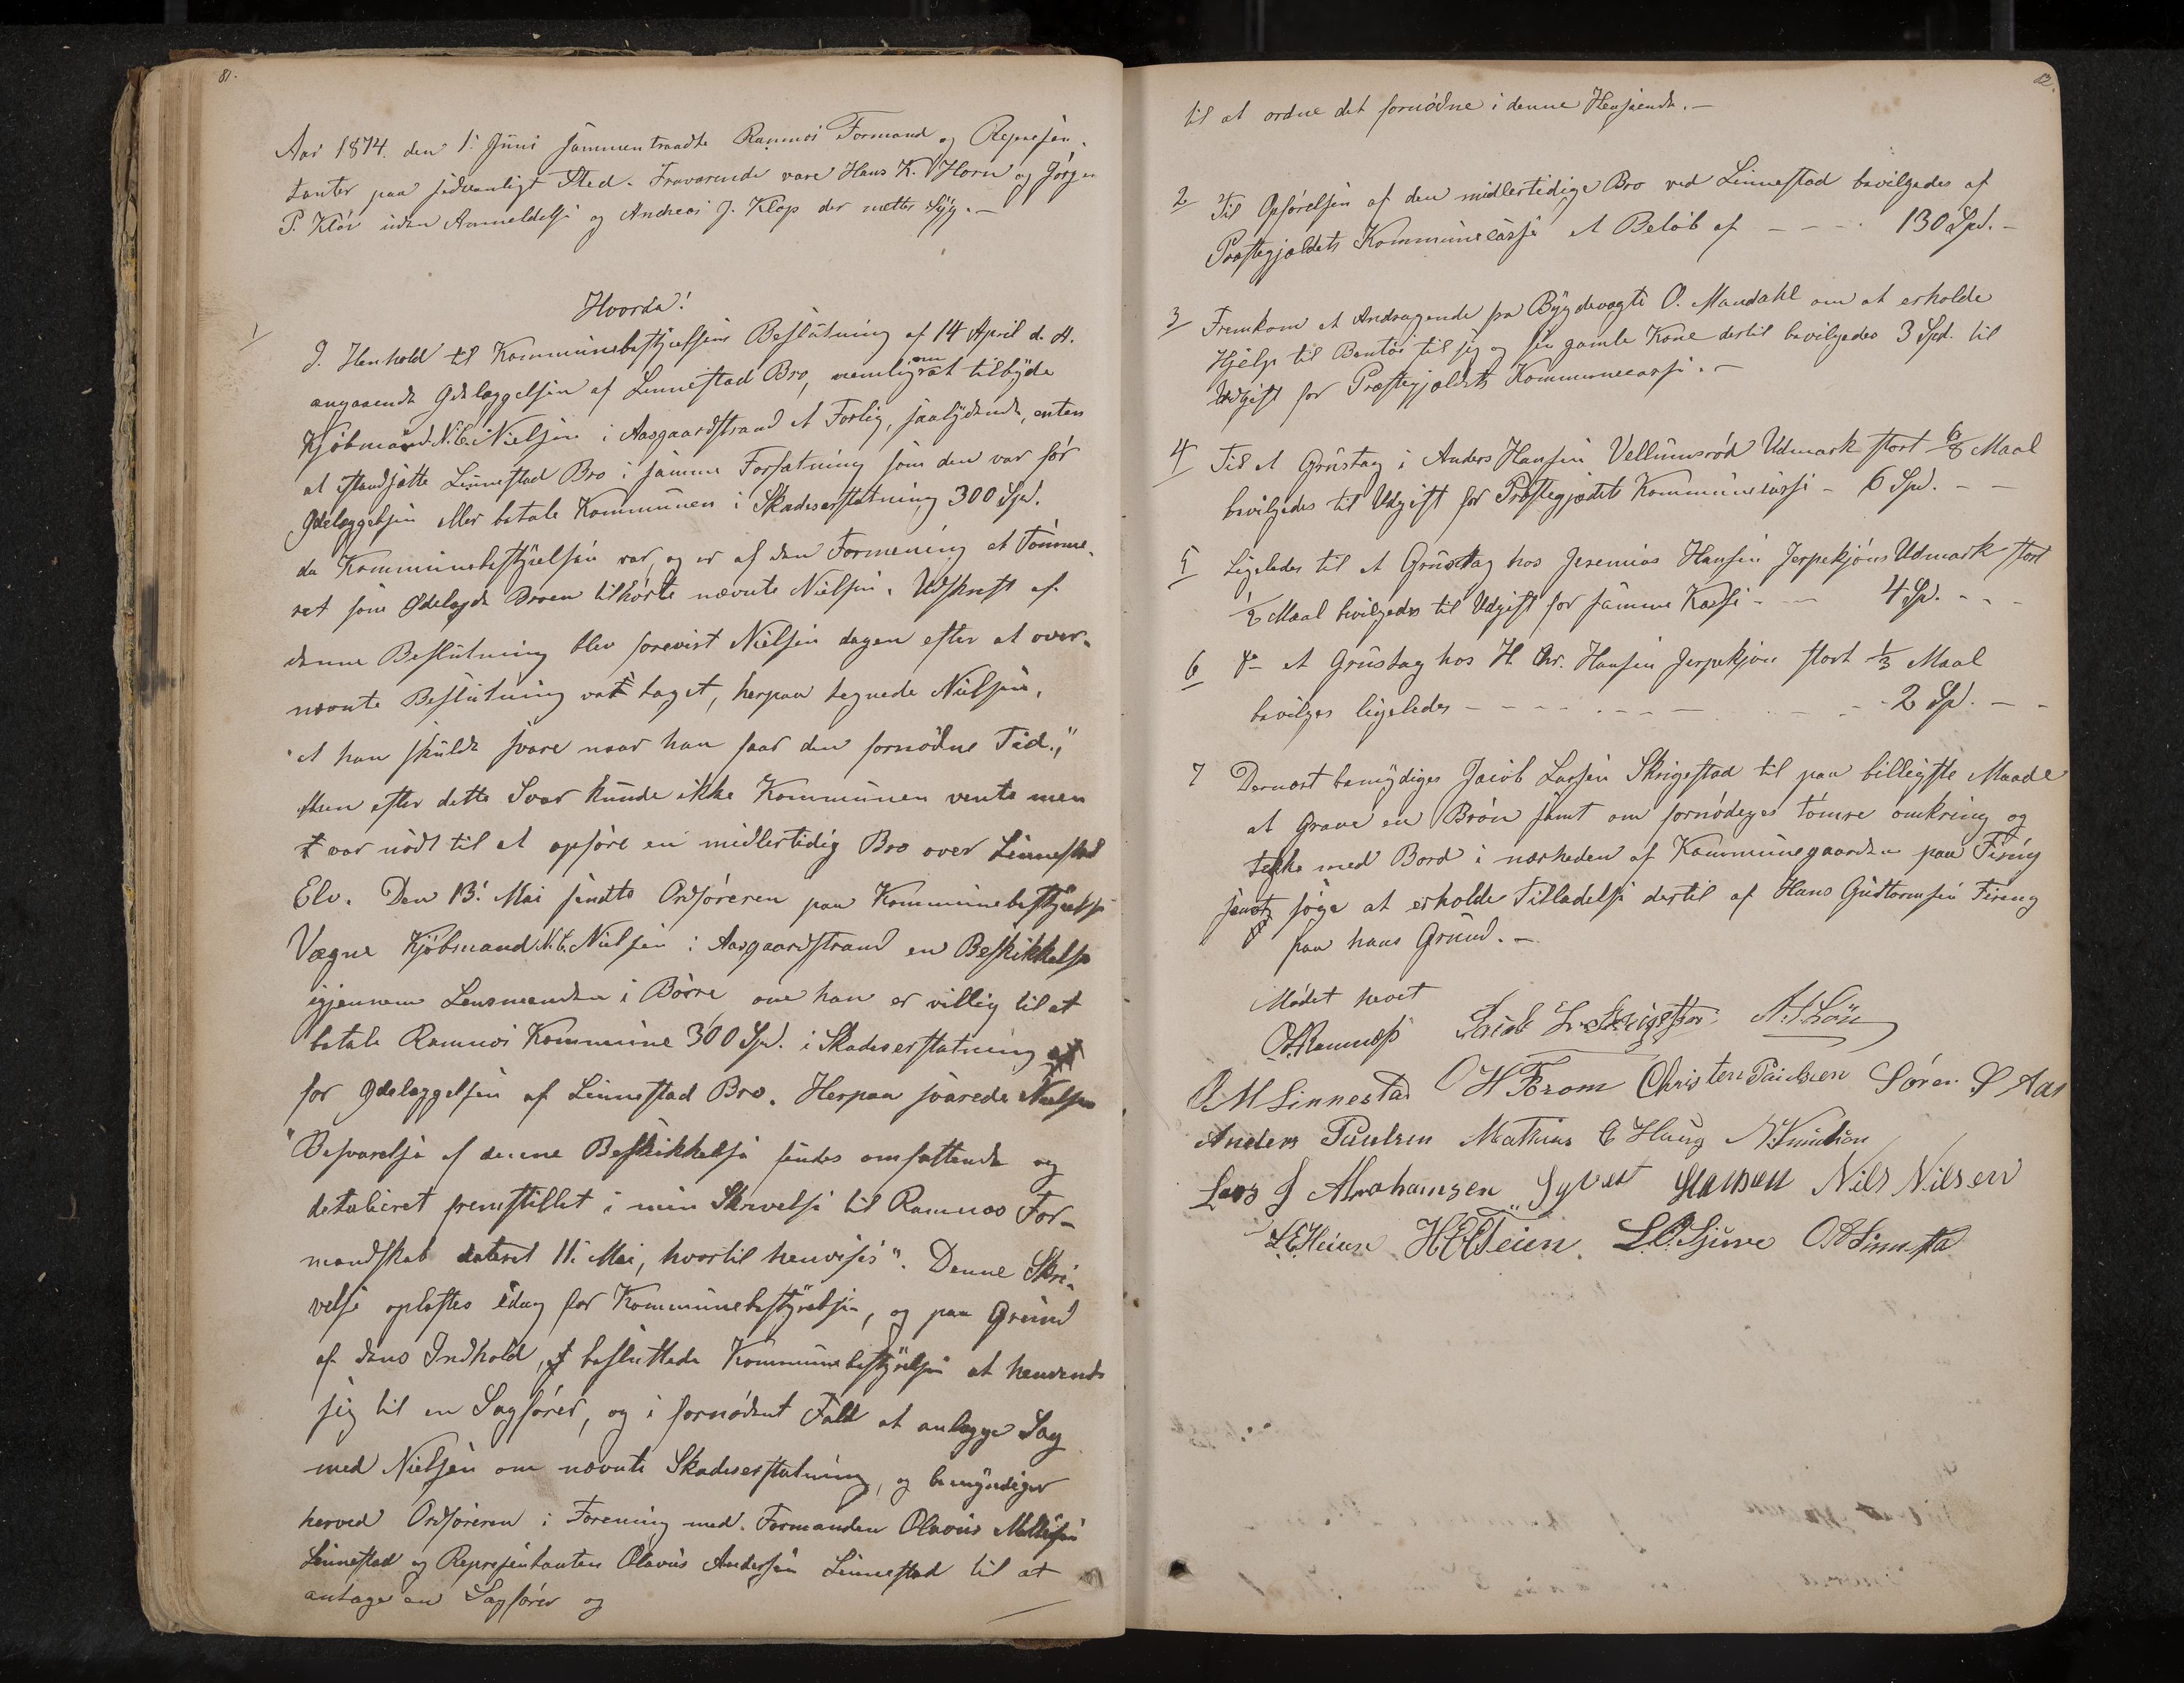 81.
Aar 1874. den 1. Juni sammentraadte Ramnes Formænd og Represen-
tanter paa sedvanligt Sted. Fraværende vare Hans K. Horn og Jörgen
P. Klöv uden Anmeldelse og Andreas J. Klop der meldte Syg. -
Hvorda!
1
I Henhold til Kommunebestyrelsens Beslutning af 14 April d. A.
angaaende Ødelæggelsen af Linnestad Bro, nemlig om at tilbyde
Kjöbmand N. C. Nielsen i Aasgaardstrand et Forlig, saalydende, enten
at istandsætte Linnestad Bro i samme Forfatning som den var för
Ødelæggelsen eller betale Kommunen i Skadeserstatning 300 Spd.
da Kommunebestyrelsen var, og er af den Formening at Tömme-
ret som Ødelagde Broen tilhörte nævnte Nielsen. Udskrift af
denne Beslutning blev forevist Nielsen dagen efter at over-
nævnte Beslutning var taget, herpaa tegnede Nielsen,
"at han skulde svare naar han faar den fornødne Tid,"
Men efter dette Svar kunde ikke Kommunen vente men
var nödt til at opföre en midlertidig Bro over Linnestad
Elv. Den 13. Mai sendte Ordföreren paa Kommunebestyrelsens
Vægne Kjöbmand N. C. Nielsen i Aasgaardstrand en Beskikkelse
igjennem Lensmanden i Borre om han er villig til at
betale Ramnes Kommune 300 Spd. i Skadeserstatning
for Ødelæggelsen af Linnestad Bro. Herpaa svarede Nielsen
"Besvarelse af denne Beskikkelse findes omfattende og
detalieret fremstillet i min Skrivelse til Ramnæs For-
mandskab dateret 11. Mai, hvortil henvises". Denne Skri-
velse oplæstes idag for Kommunebestyrelsen, og paa Grund
af dens Indhold, besluttede Kommunebestyrelsen at henvende
sig til en Sagförer, og i fornødent Fald at anlægge Sag
med Nielsen om nævnte Skadeserstatning, og bemyndiger
herved Ordföreren i Forening med Formanden Olavus Mathisen
Linnestad og Representanten Olavus Andersen Linnestad til at
antage en Sagförer og
82.
til at ordne det fornødne i denne Henseende. -
2 Til Opförelsen af den midlertidige Bro ved Linnestad bevilgedes af
Præstegjældets Kommunecasse et Belöb af - - - - 130 Spd. -
3 Fremkom et Andragende fra Bygdevægte O. Mandahl om at erholde
Hjælp til Bantöi til sig og sin gamle Kone dertil bevilgedes 3 Spd. til
Udgift for Præstegjældets Kommunecasse. -
4 Til et Grustag i Anders Hansen Vellumsröd Udmark stort 6/8 Maal
bevilgedes til Udgift for Præstegjældets Kommunecasse - 6 Spd. - -
5 Ligeledes til et Grustag hos Jeremias Hansen Jerpekjöns Udmark stort
1/2 Maal bevilgedes til Udgift for samme Kasse - - 4 Sp. - - -
6 do et Grustag hos H. Chr. Hansen Jerpekjön stort 1/3 Maal
bevilges ligeledes - - - - - - - - - 2 Sp. - -
7 Dernæst bemyndiges Jacob Larsen Skrigestad til paa billigste Maade
at grave en Brön samt om fornødiges tömre omkring og
tække med Bord i nærheden af Kommunegaarden paa Firing
samt söge at erholde Tilladelse dertil af Hans Guttormsen Firing
paa hans Grund. -
Mødet hævet
O. Ramnes Jacob L. Skrigestad
O M Linnestad O H From Christen Paulsen Sören S Aas
Anders Paulsen Mathias C Haug N. Knudsen
Lars J Abrahamsen Syvert Hansen Nils Nilsen
L. E. Heien